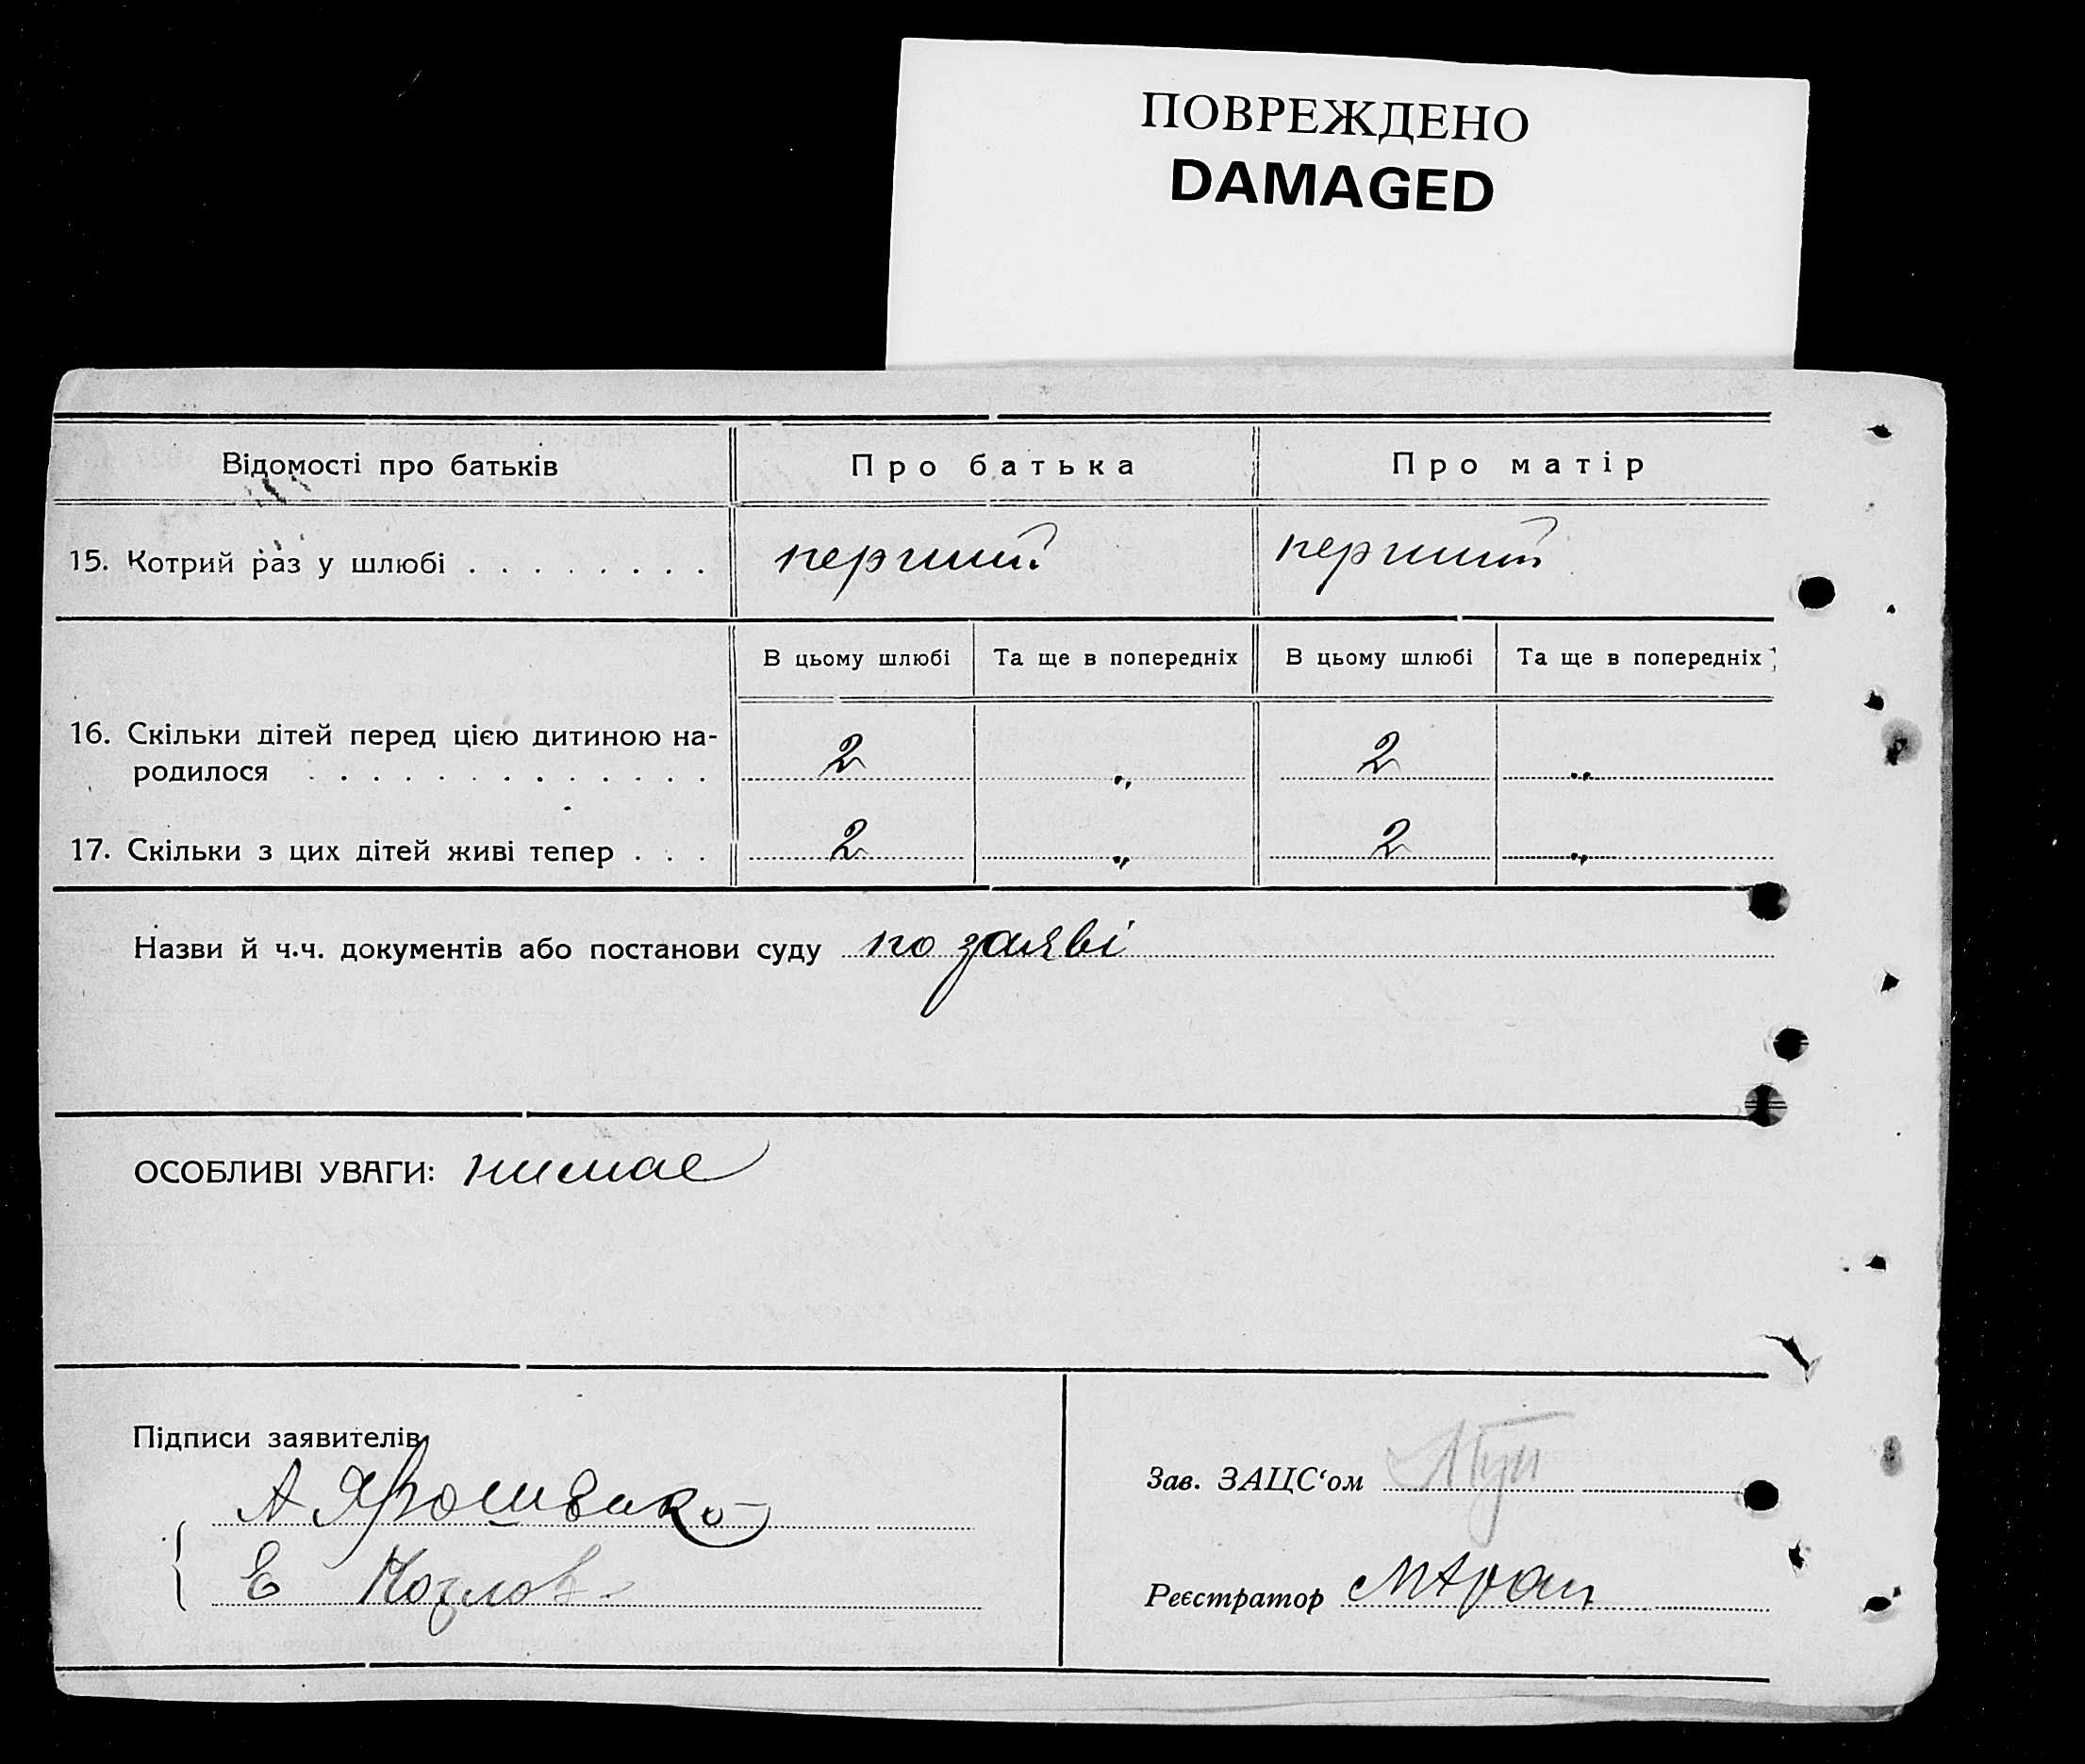 ПОВРЕЖДЕНО
DAMAGED
Відомості про батьків Про батька Про матір
15. Котрий раз у шлюбі . . . . . . . . перший перший
В цьому шлюбі Та ще в попередніх В цьому шлюбі Та ще в попередніх
16. Скільки дітей перед цією дитиною на-
родилося . . . . . . . . . . . . . 2 „ 2 „
17. Скільки з цих дітей живі тепер . . . 2 „ 2 „
Назви й ч.ч. документів або постанови суду по заяві
ОСОБЛИВІ УВАГИ: нимае
Підписи заявителів
А Ярошенко
Зав. ЗАЦС‘ом
Е Козлов
Реєстратор